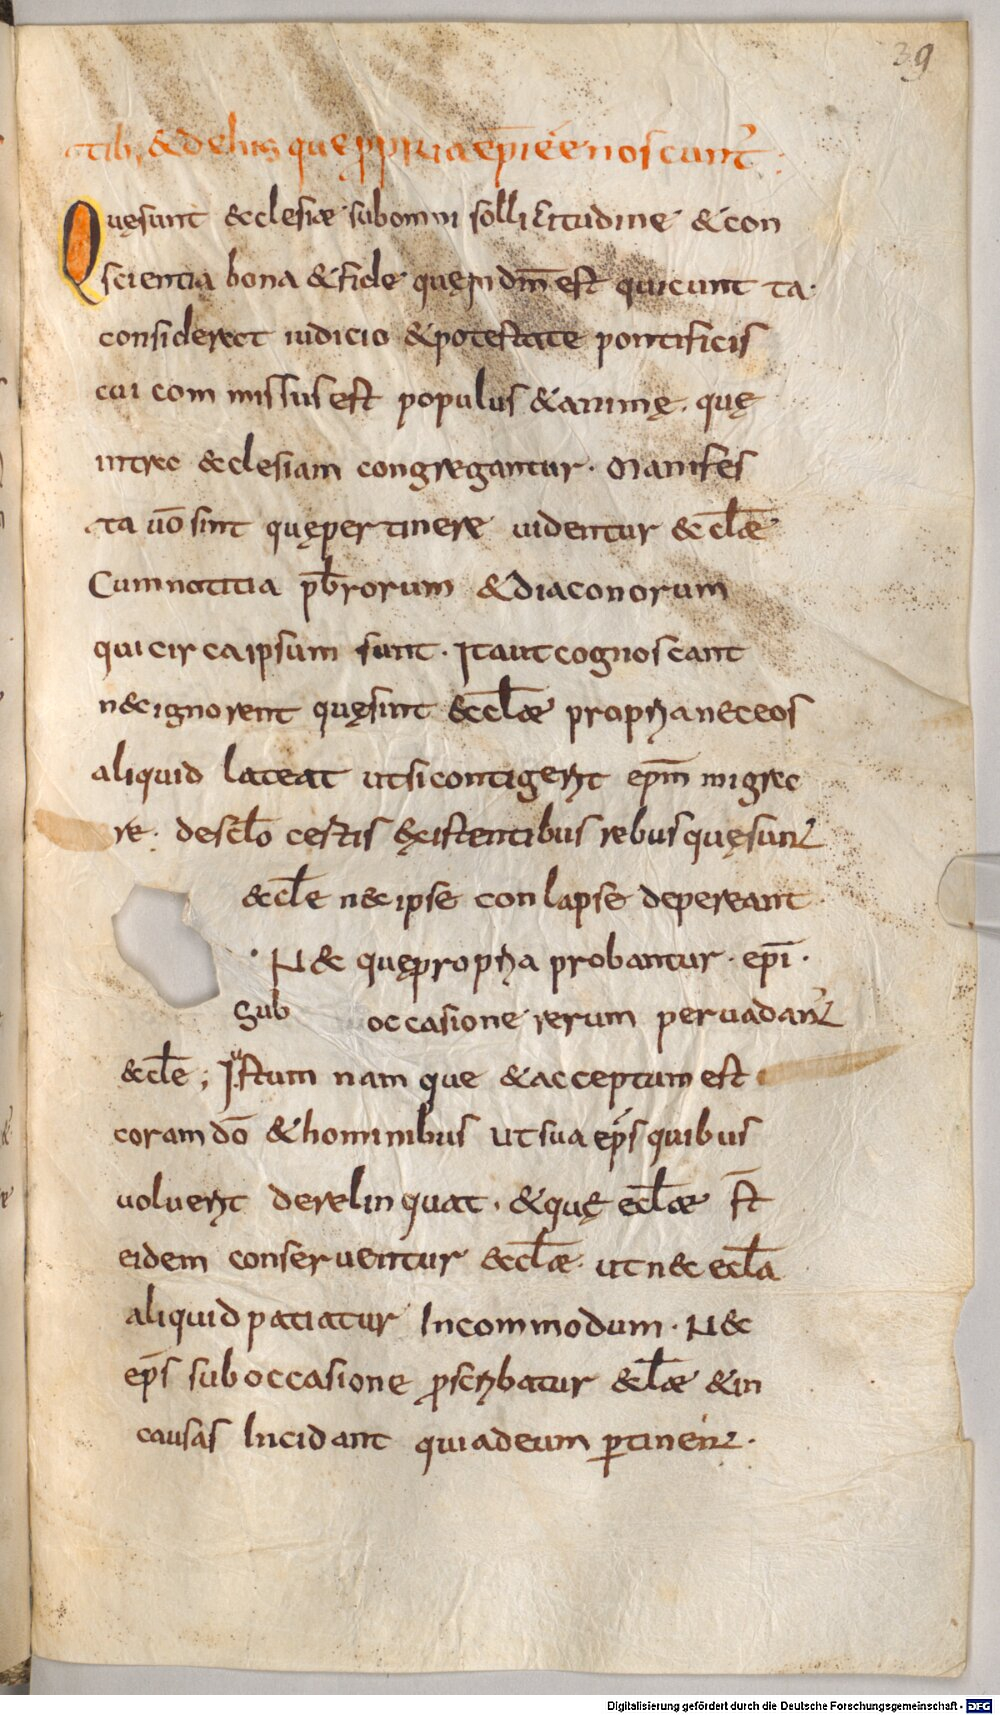 39
tib; & de his quę ppria epī ēē noscunt̄.
Quę sunt &clesiæ sub omni sollicitudine & con
scientia bona & fide quę in dm̄ est qui cunta
considerat iudicio & potestate pontificis
cui commissus est populus & animę. quę
intrec &clesiam congregantur. Manifes
ta uō sint quę pertinere uidentur &cl̄æ
Cum notitia pb̄rorum & diaconorum
qui circa ipsum sunt. Ita ut cognoscant
nec ignorent quę sunt &ccl̄æ propria nec eos
aliquid lateat ut si contigerit ep̄m migrec
re. de scl̄o certis existentibus rebus quę sunt
&cl̄e n&ipse conlapse depereant
· N& quę propria probantur. epī.
Sub occasione rerum peruadant̄
&cl̄e; Iustum namque & acceptum est
coram dō & hominibus ut sua ep̄s quibus
uoluerit derelinquat. & quę ecl̄æ st̄
eidem conseruentur &ccl̄æ ut n& ecl̄a
aliquid patiatur Incommodum. N&
ep̄s sub occasione pscribatur &cl̄æ & in
causas Incidant qui ad eum ptinent.
Digitalisierung gefördert durch die Deutsche Forschungsgemeinschaft - DFG